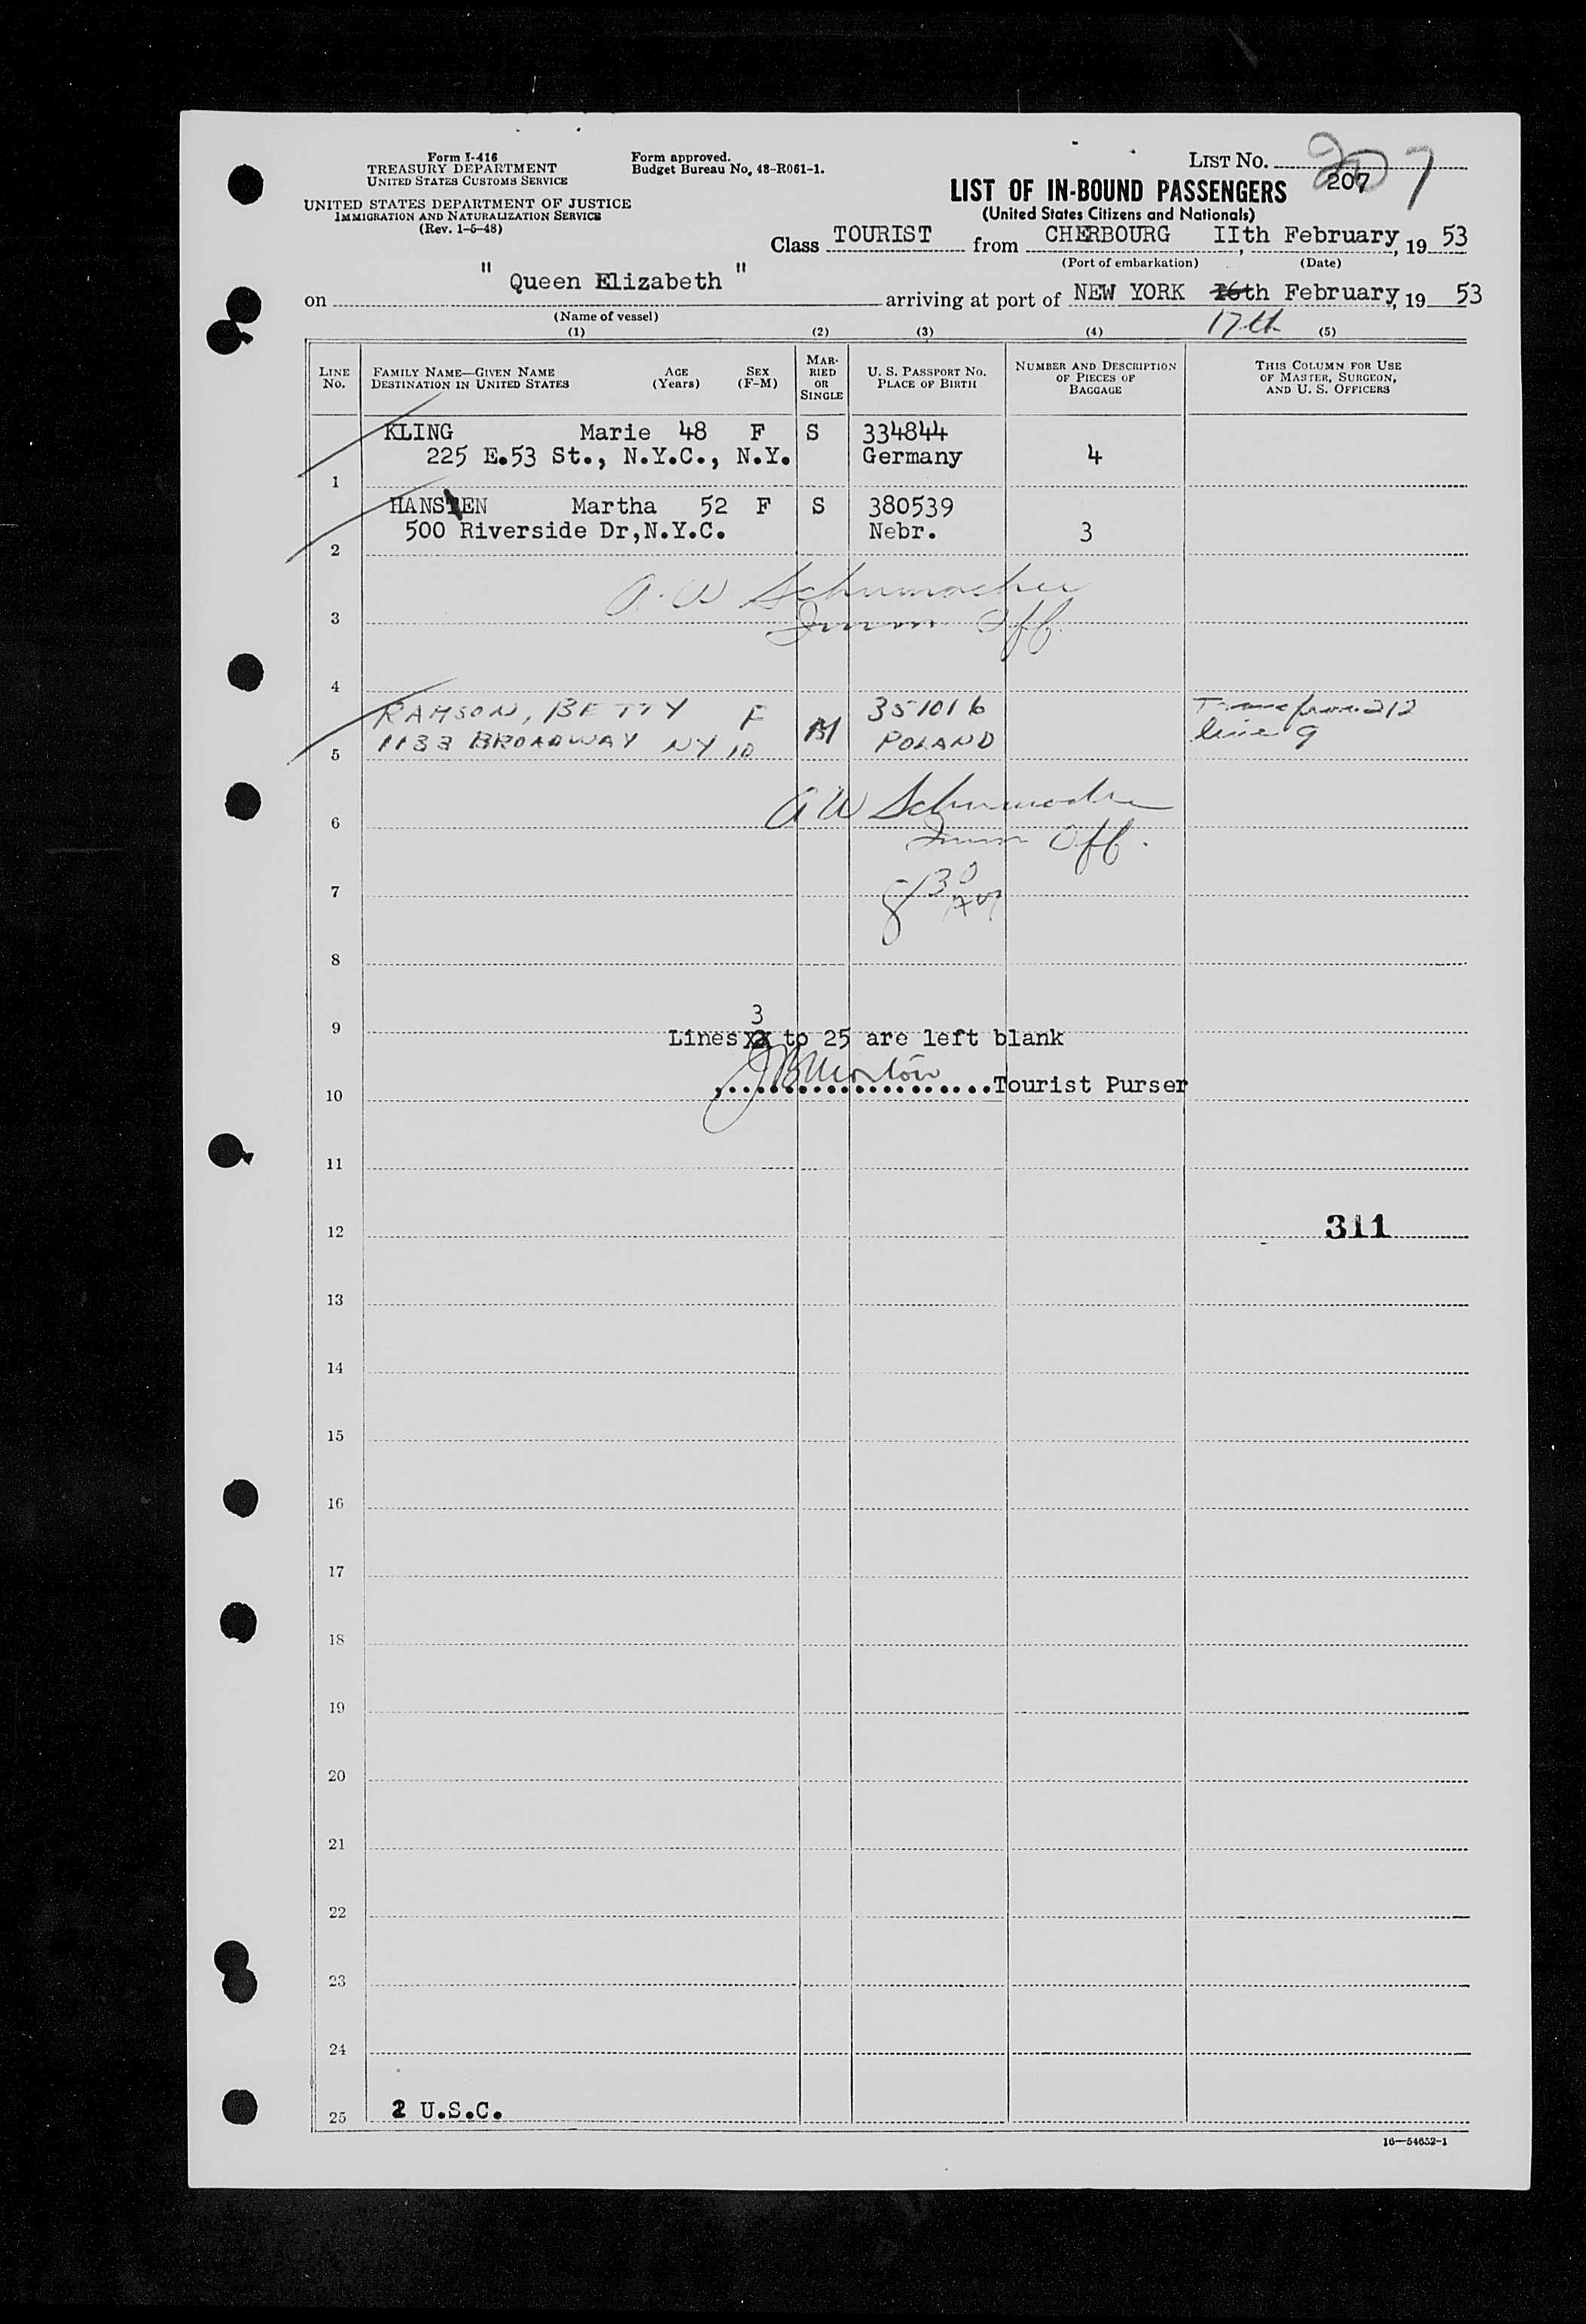 Form I-416
TREASURY DEPARTMENT
UNITED STATES CUSTOMS SERVICE
UNITED STATES DEPARTMENT OF JUSTICE
IMMIGRATION AND NATURALIZATION SERVICE
(Rev. 1-5-48)
Form approved.
Budget Bureau No. 48-R061-1.
LIST NO. 207
207
LIST OF IN-BOUND PASSENGERS
(United States Citizens and Nationals)
Class TOURIST from CHERBOURG IIth February, 19 53
(Port of embarkation) (Date)
on "Queen Elizabeth" arriving at port of NEW YORK 16th February, 19 53
(Name of vessel) 17th
(1) (2) (3) (4) (5)
LINE No. FAMILY NAME—GIVEN NAME DESTINATION IN UNITED STATES AGE (Years) SEX (F-M) MARRIED OR SINGLE U. S. PASSPORT NO. PLACE OF BIRTH NUMBER AND DESCRIPTION OF PIECES OF BAGGAGE THIS COLUMN FOR USE OF MASTER, SURGEON, AND U. S. OFFICERS
KLING Marie 48 F S 334844
225 E.53 St., N.Y.C., N.Y. Germany 4
1
HANSEN Martha 52 F S 380539
500 Riverside Dr,N.Y.C. Nebr. 3
2
A. W Schumacher
3 Imm Off.
4
RAMSON, BETTY F M 351016 Trans from 212
1133 BROADWAY NY 10 POLAND line 9
5
A W Schumacher
6 Imm Off.
7
8
3
9 Lines xx to 25 are left blank
10 Tourist Purser
11
12 311
13
14
15
16
17
18
19
20
21
22
23
24
25 2 U.S.C.
16—54652-1